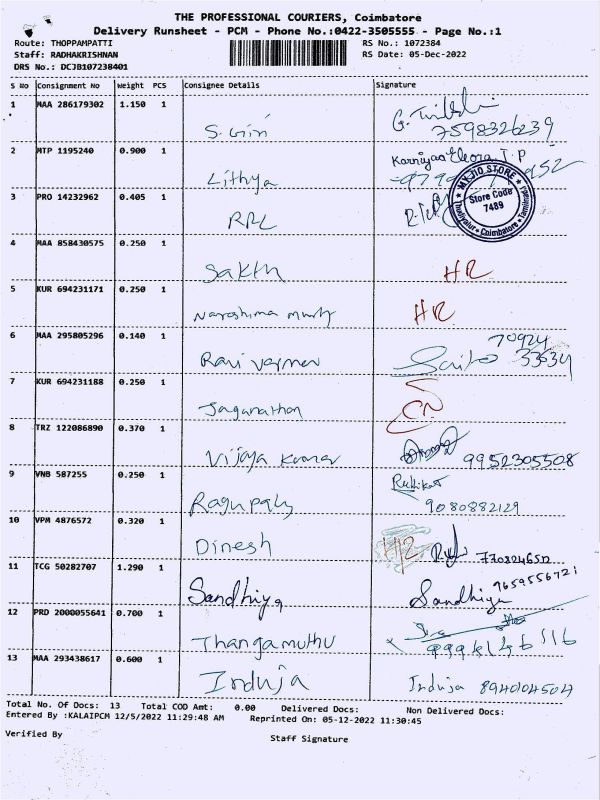 THE PROFESSIONAL COURIERS, Coimbatore
Delivery Runsheet - PCM - Phone No.:0422-3505555 - Page No.:1
Route: THOPPAMPATTI RS No.: 1072384
Staff: RADHAKRISHNAN RS Date: 05-Dec-2022
DRS No.: DCJB107238401
S No Consignment No Weight PCS Consignee Details Signature
1 MAA 286179302 1.150 1
S. Giri 7598326239
2 MTP 1195240 0.900 1
Lithya
3 PRO 14232962 0.405 1
RRL
MY JIO STORE
Store Code
7489
Coimbatore
4 MAA 858430575 0.250 1
Sakthi HR
5 KUR 694231171 0.250 1
Narashima murty HR
6 MAA 295805296 0.140 1
Ravi varman 70924 33634
7 KUR 694231188 0.250 1
Jaganathan
8 TRZ 122086890 0.370 1
Vijaya kumar 9952305508
9 VNB 587255 0.250 1
Ragupaly 9080882129
10 VPM 4876572 0.320 1
Dinesh
11 TCG 50282707 1.290 1
Sandhiya Sandhiya 9659556721
12 PRD 2000055641 0.700 1
Thangamuthu
13 MAA 293438617 0.600 1
Induja Induja 8940104504
Total No. Of Docs: 13 Total COD Amt: 0.00 Delivered Docs: Non Delivered Docs:
Entered By :KALAIPCM 12/5/2022 11:29:48 AM Reprinted On: 05-12-2022 11:30:45
Verified By Staff Signature